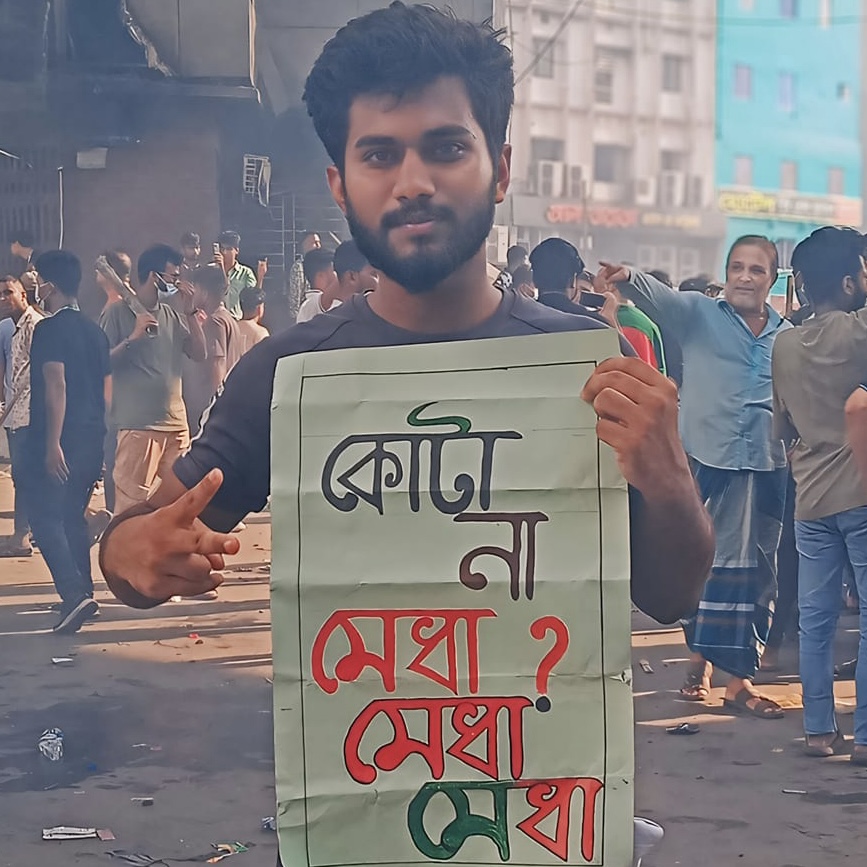 কোটা
না
মেধা ?
মেধা
মেধা